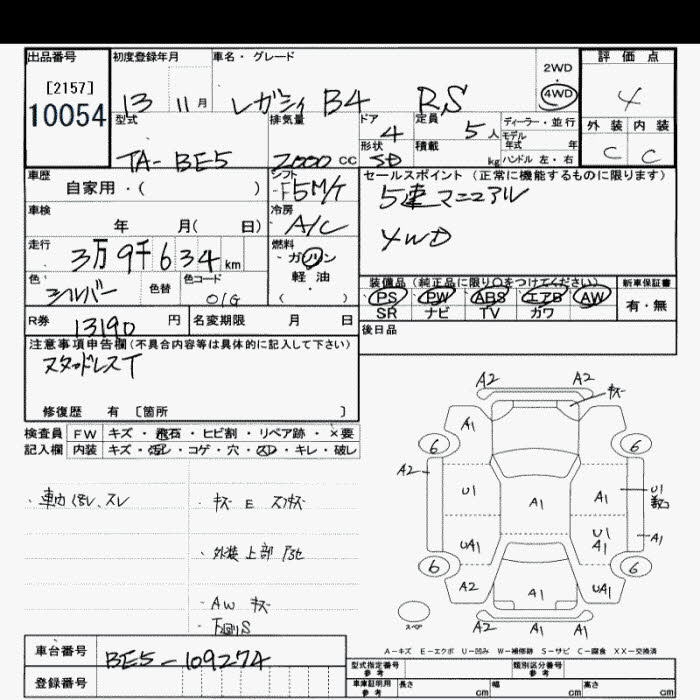 出品番号 初度登録年月 車名・グレード 2WD ・ 4WD 評価点
[2157] 13 11月 レガシィ B4 RS 4
10054 型式 排気量 ドア 定員 ディーラー・並行 外装 内装
TA-BE5 2000cc 4 5人 モデル年式 年 C C
形状 積載 kg ハンドル 左・右
5D
車歴 自家用・( ) シフト F5M/T セールスポイント(正常に機能するものに限ります)
車検 年 月( 日) 冷房 A/C 5速マニュアル
4WD
走行 3万9千634km 燃料 ・ガソリン ・軽油 ・( )
色 シルバー 色替 色コード 01G 装備品(純正品に限り○をつけてください) 新車保証書
PS PW ABS エアB AW 有・無
SR ナビ TV カワ
R券 13190円 名変期限 月 日 後日品
注意事項申告欄(不具合内容等は具体的に記入して下さい)
スタッドレスT
修復歴 有 [箇所 ]
検査員 FW キズ・飛石・ヒビ割・リペア跡・×要
記入欄 内装 キズ・汚レ・コゲ・穴・スレ・キレ・破レ
・車内汚レ、スレ ・キズ E スリキズ
・外装上部
・AW キズ
・下回りS
A2 A2 キズ
A1
6 6
A2 U1 A1 A1 U1
UA1 U1 A1 A1
6 6
A2 A1 UA1
スペア A2 A1 A1
A-キズ E-エクボ U-凹み W-補修跡 S-サビ C-腐食 XX-交換済
車台番号 BE5-109274
登録番号
型式指定番号 参考 類別区分番号 参考
車庫証明用 参考 長さ cm 幅 cm 高さ cm